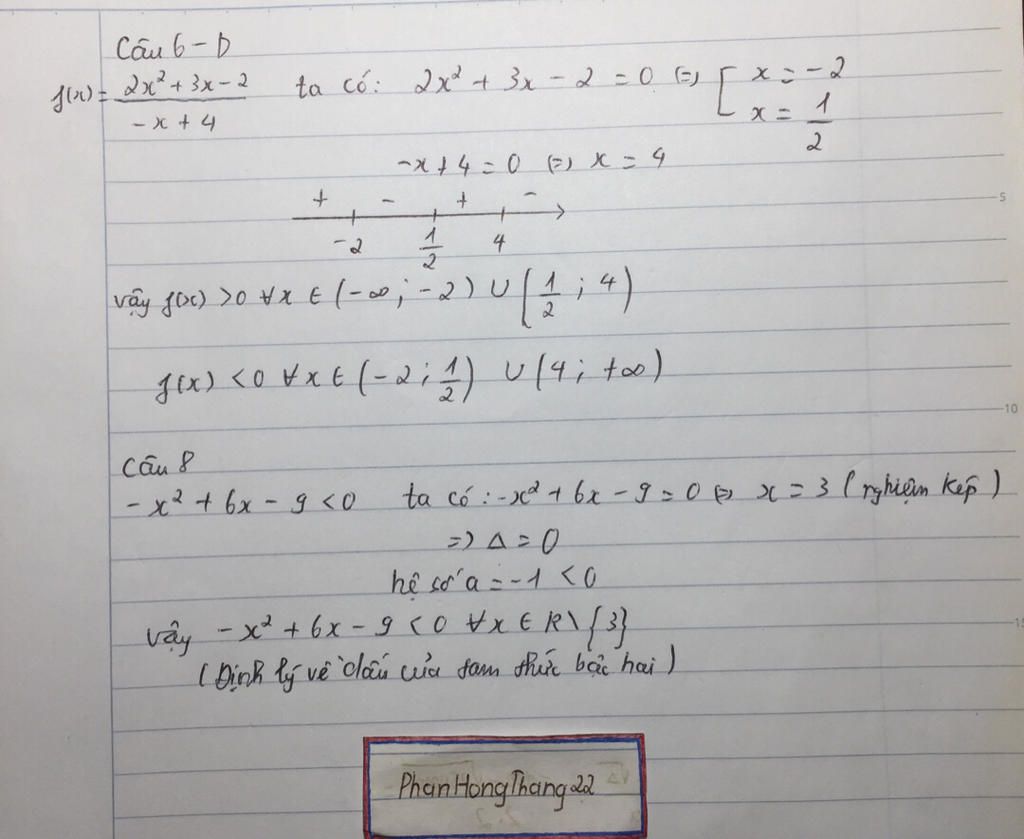 Câu 6 - D
f(x) = (2x² + 3x - 2)/(-x + 4) ta có: 2x² + 3x - 2 = 0 (=) [ x = -2
x = 1/2
-x + 4 = 0 (=) x = 4
+ - + -
-2 1/2 4
vậy f(x) > 0 ∀x ∈ (-∞; -2) ∪ (1/2; 4)
f(x) < 0 ∀x ∈ (-2; 1/2) ∪ (4; +∞)
Câu 8
-x² + 6x - 9 < 0 ta có: -x² + 6x - 9 = 0 (=) x = 3 (nghiệm kép)
=) Δ = 0
hệ số a = -1 < 0
vậy -x² + 6x - 9 < 0 ∀x ∈ R\{3}
(Định lý về dấu của tam thức bậc hai)
PhanHongThang22
5
10
15